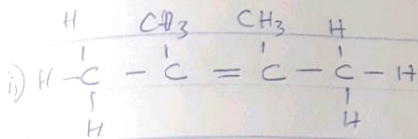 H CH3 CH3 H
i) H - C - C = C - C - H
H H